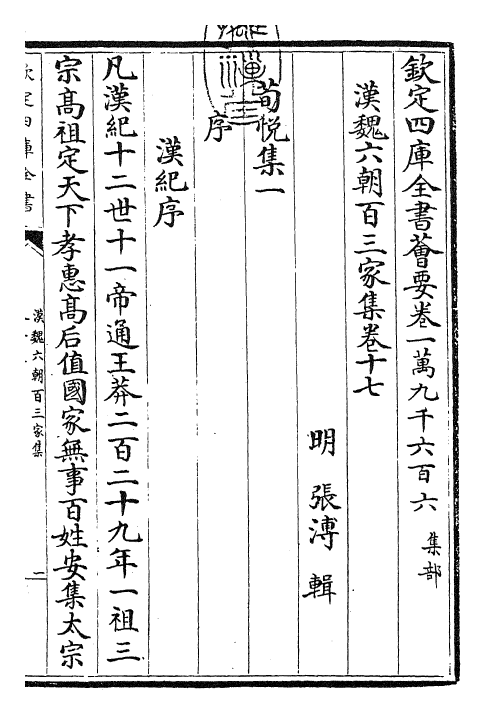 欽定四庫全書薈要卷一萬九千六百六 集部
漢魏六朝百三家集卷十七
明 張溥 輯
荀悅集一
序
漢紀序
凡漢紀十二世十一帝通王莽二百二十九年一祖三
宗高祖定天下孝惠高后值國家無事百姓安集太宗
欽定四庫全書
漢魏六朝百三家集
一